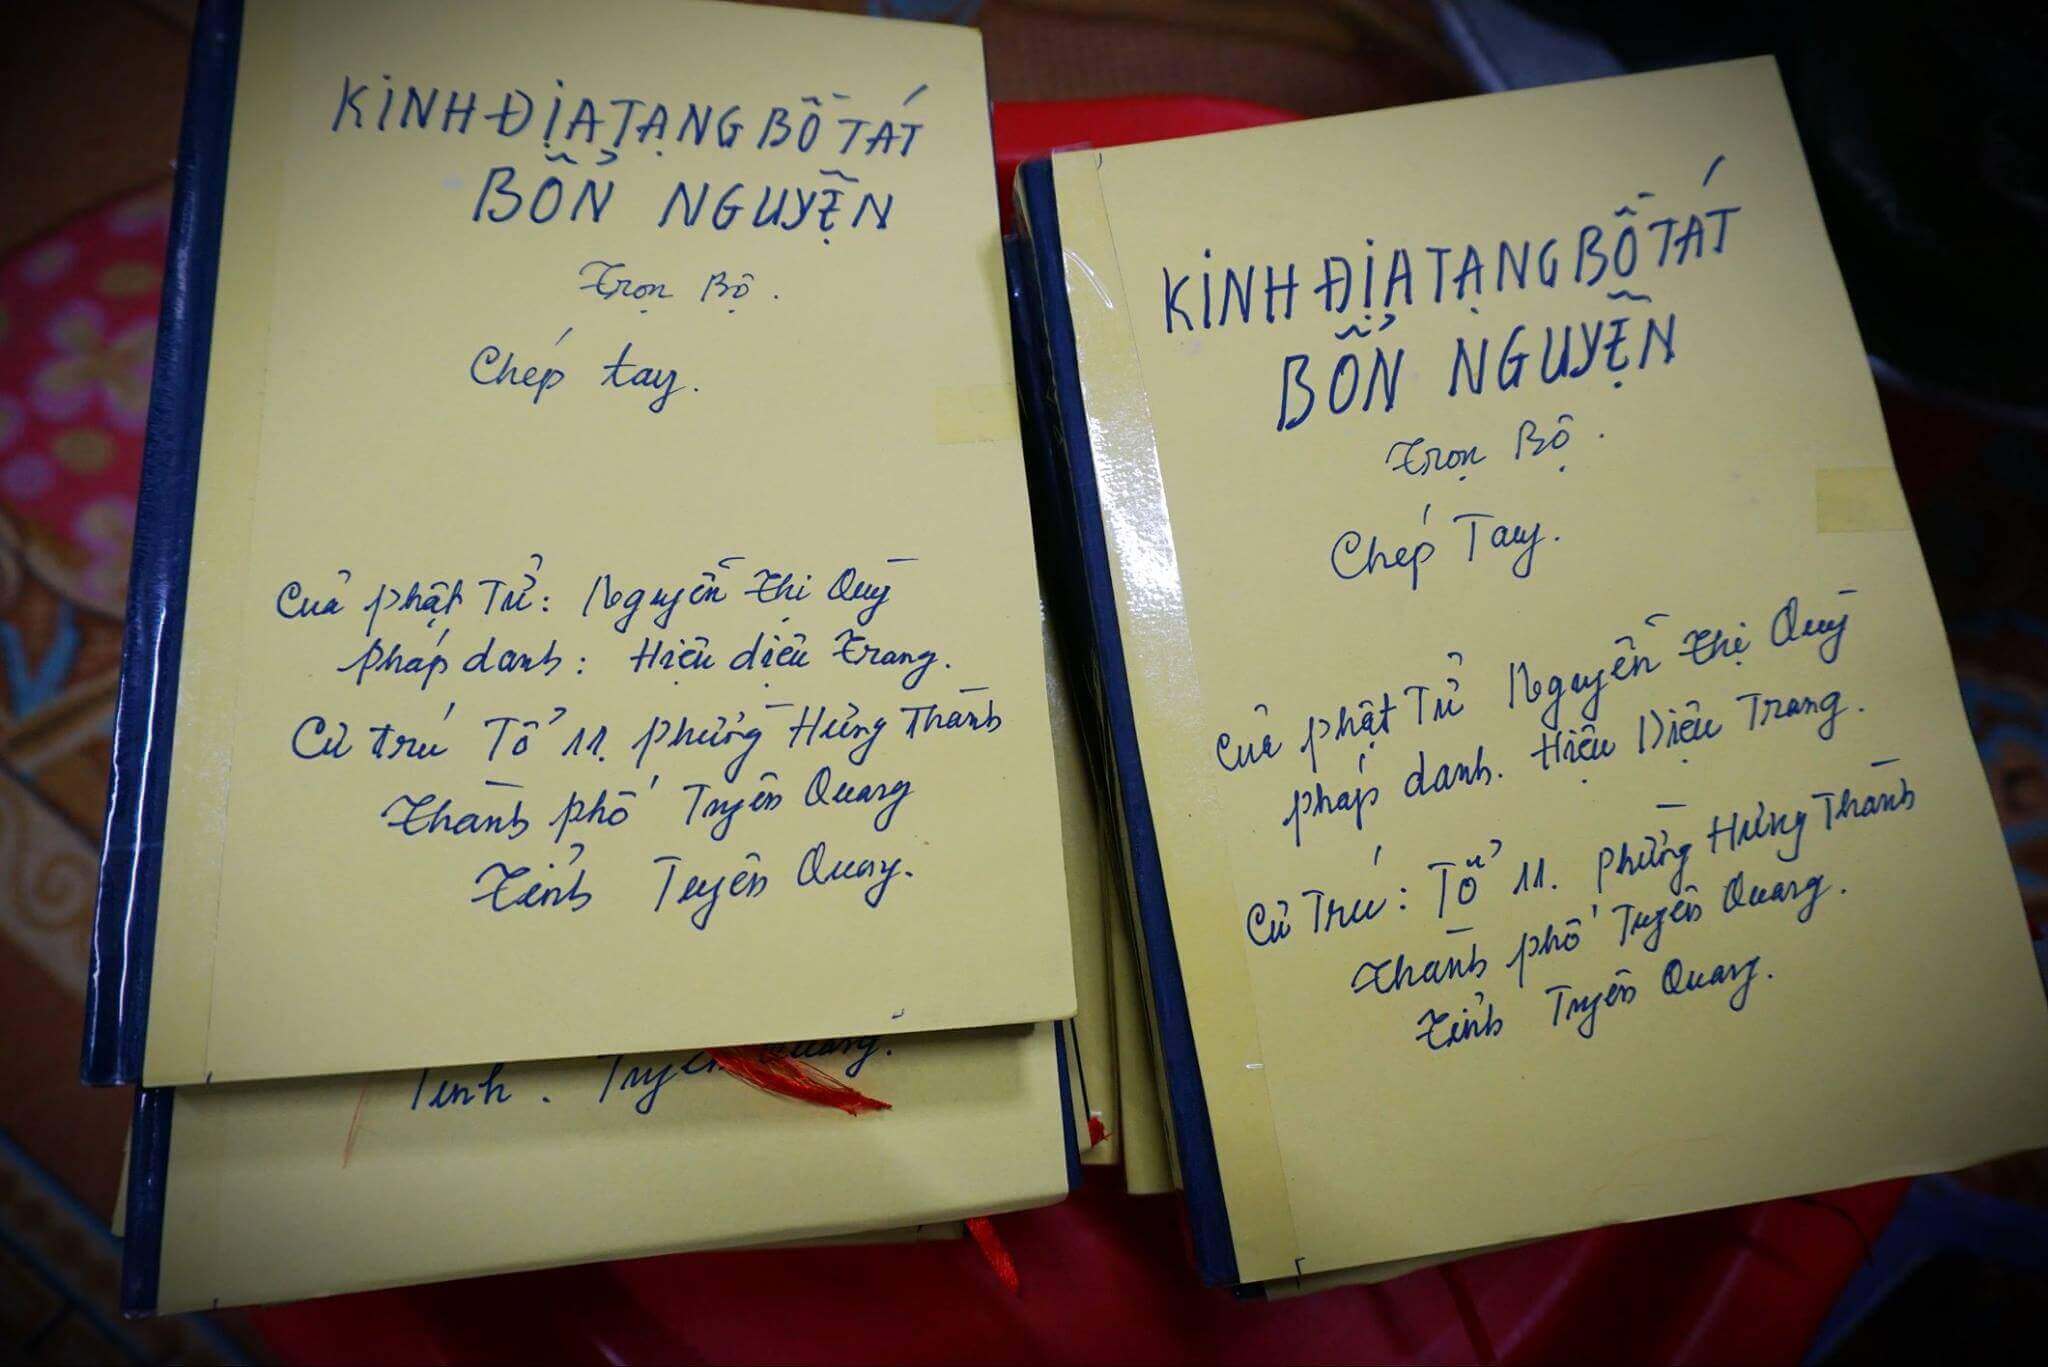 KINH ĐỊA TẠNG BỒ TÁT
BỔN NGUYỆN
Trọn Bộ.
Chép tay.
Của phật Tử: Nguyễn Thị Quỳ
pháp danh: Hiệu diệu Trang.
Cư trú Tổ 11. phường Hưng Thành
Thành phố Tuyên Quang
Tỉnh Tuyên Quang.
Tỉnh. Tuyên Quang.
KINH ĐỊA TẠNG BỒ TÁT
BỔN NGUYỆN
Trọn Bộ.
Chép Tay.
Của phật Tử Nguyễn Thị Quỳ
pháp danh. Hiệu Diệu Trang.
Cư Trú: Tổ 11. phường Hưng Thành
Thành phố Tuyên Quang.
Tỉnh Tuyên Quang.